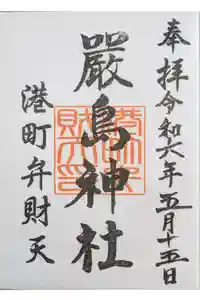 奉拝 令和六年五月十五日
嚴島神社
港町弁財天